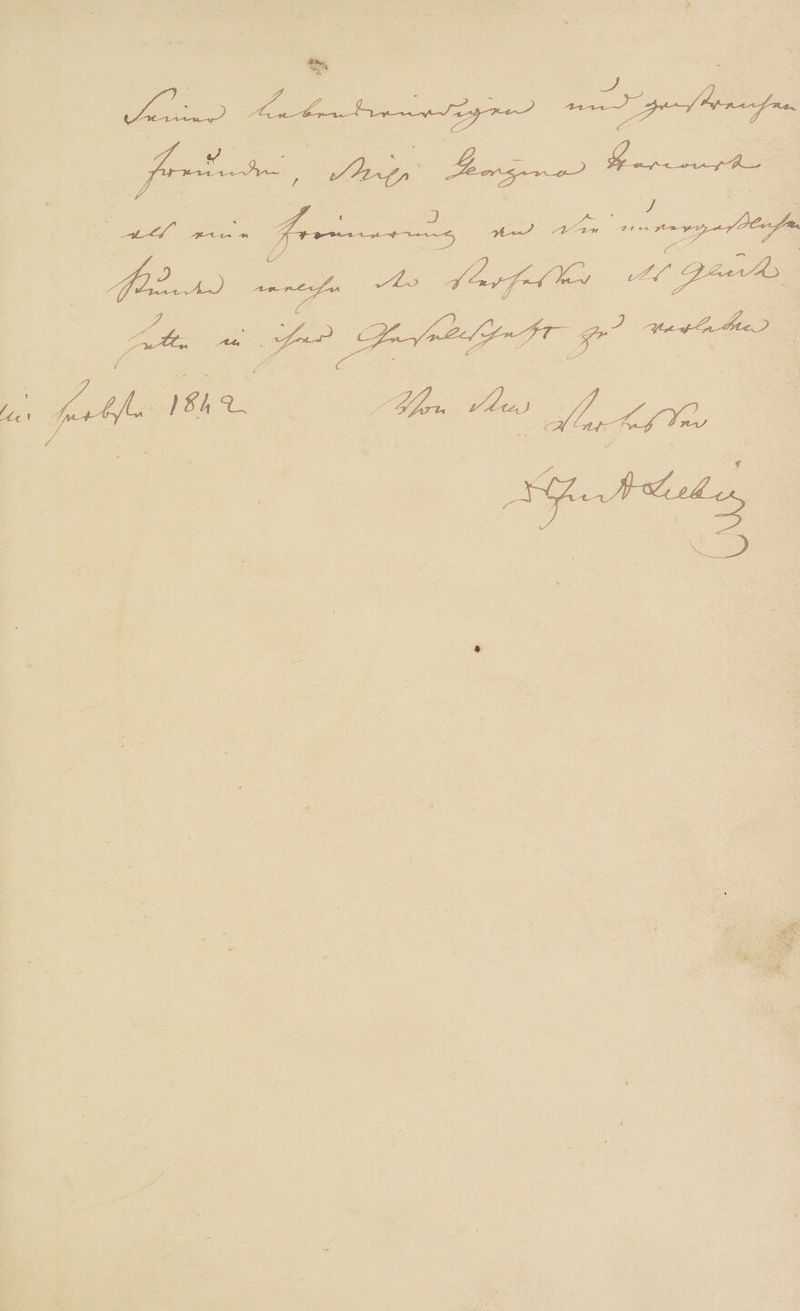 Seiner liebenswürdigen und geistreichen
Freundin, Miss Georgina Harcourt
als eine Erinnerung an die unvergeßlichen
Stunden welche der Verfasser das Glück
hatte in ihrer Gesellschaft zu verleben
im Herbste 1842 Von dem Verfasser
Liebig